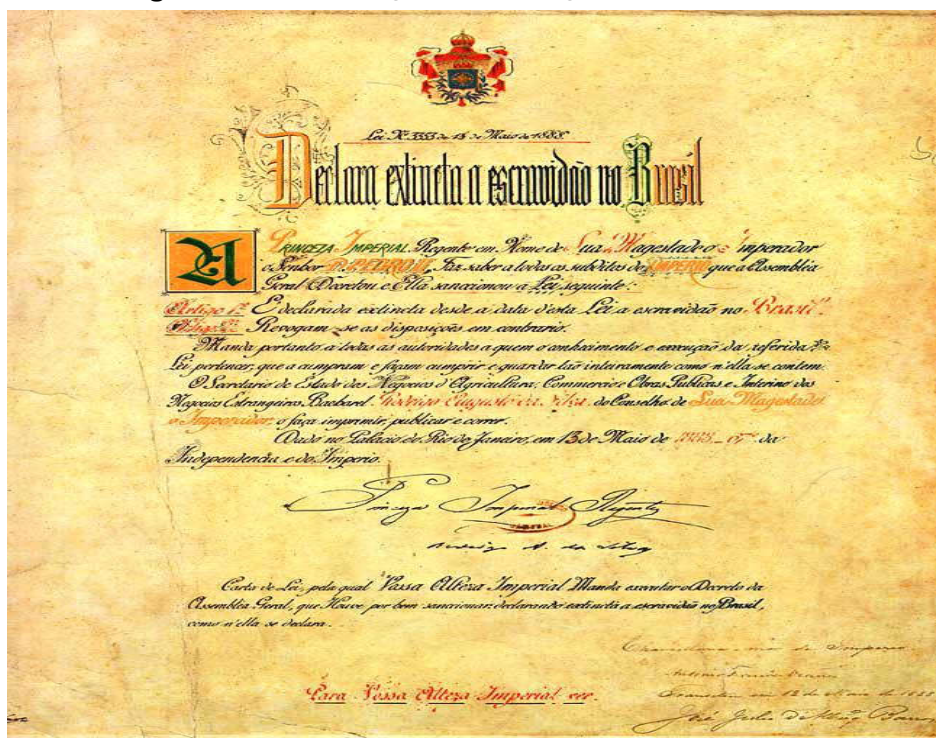 Lei Nº 3353 de 13 de Maio de 1888
Declara extincta a escravidão no Brasil
A PRINCEZA IMPERIAL Regente em Nome de Sua Magestade o Imperador
o Senhor D. PEDRO II, Faz saber a todos os subditos do IMPERIO que a Assembléa
Geral Decretou e Ella sanccionou a Lei seguinte:
Artigo 1º É declarada extincta desde a data d'esta Lei a escravidão no Brasil.
Artigo 2º Revogam-se as disposições em contrario.
Manda portanto a todas as autoridades a quem o conhecimento e execução da referida
Lei pertencer, que a cumpram e façam cumprir e guardar tão inteiramente como n'ella se contem.
O Secretario de Estado dos Negocios d'Agricultura, Commercio e Obras Publicas e Interino dos
Negocios Estrangeiros Bacharel Rodrigo Augusto da Silva do Conselho de Sua Magestade
o Imperador, o faça imprimir, publicar e correr.
Dada no Palacio do Rio de Janeiro, em 13 de Maio de 1888 - 67º da
Independencia e do Imperio.
Princeza Imperial Regente
Rodrigo A. da Silva
Carta de Lei, pela qual Vossa Alteza Imperial Manda executar o Decreto da
Assembléa Geral, que Houve por bem sanccionar declarando extincta a escravidão no Brasil,
como n'ella se declara.
Para Vossa Alteza Imperial ver.
Chancellaria-mór do Imperio
Antonio Ferreira Vianna
Transitou em 13 de Maio de 1888
José Julio